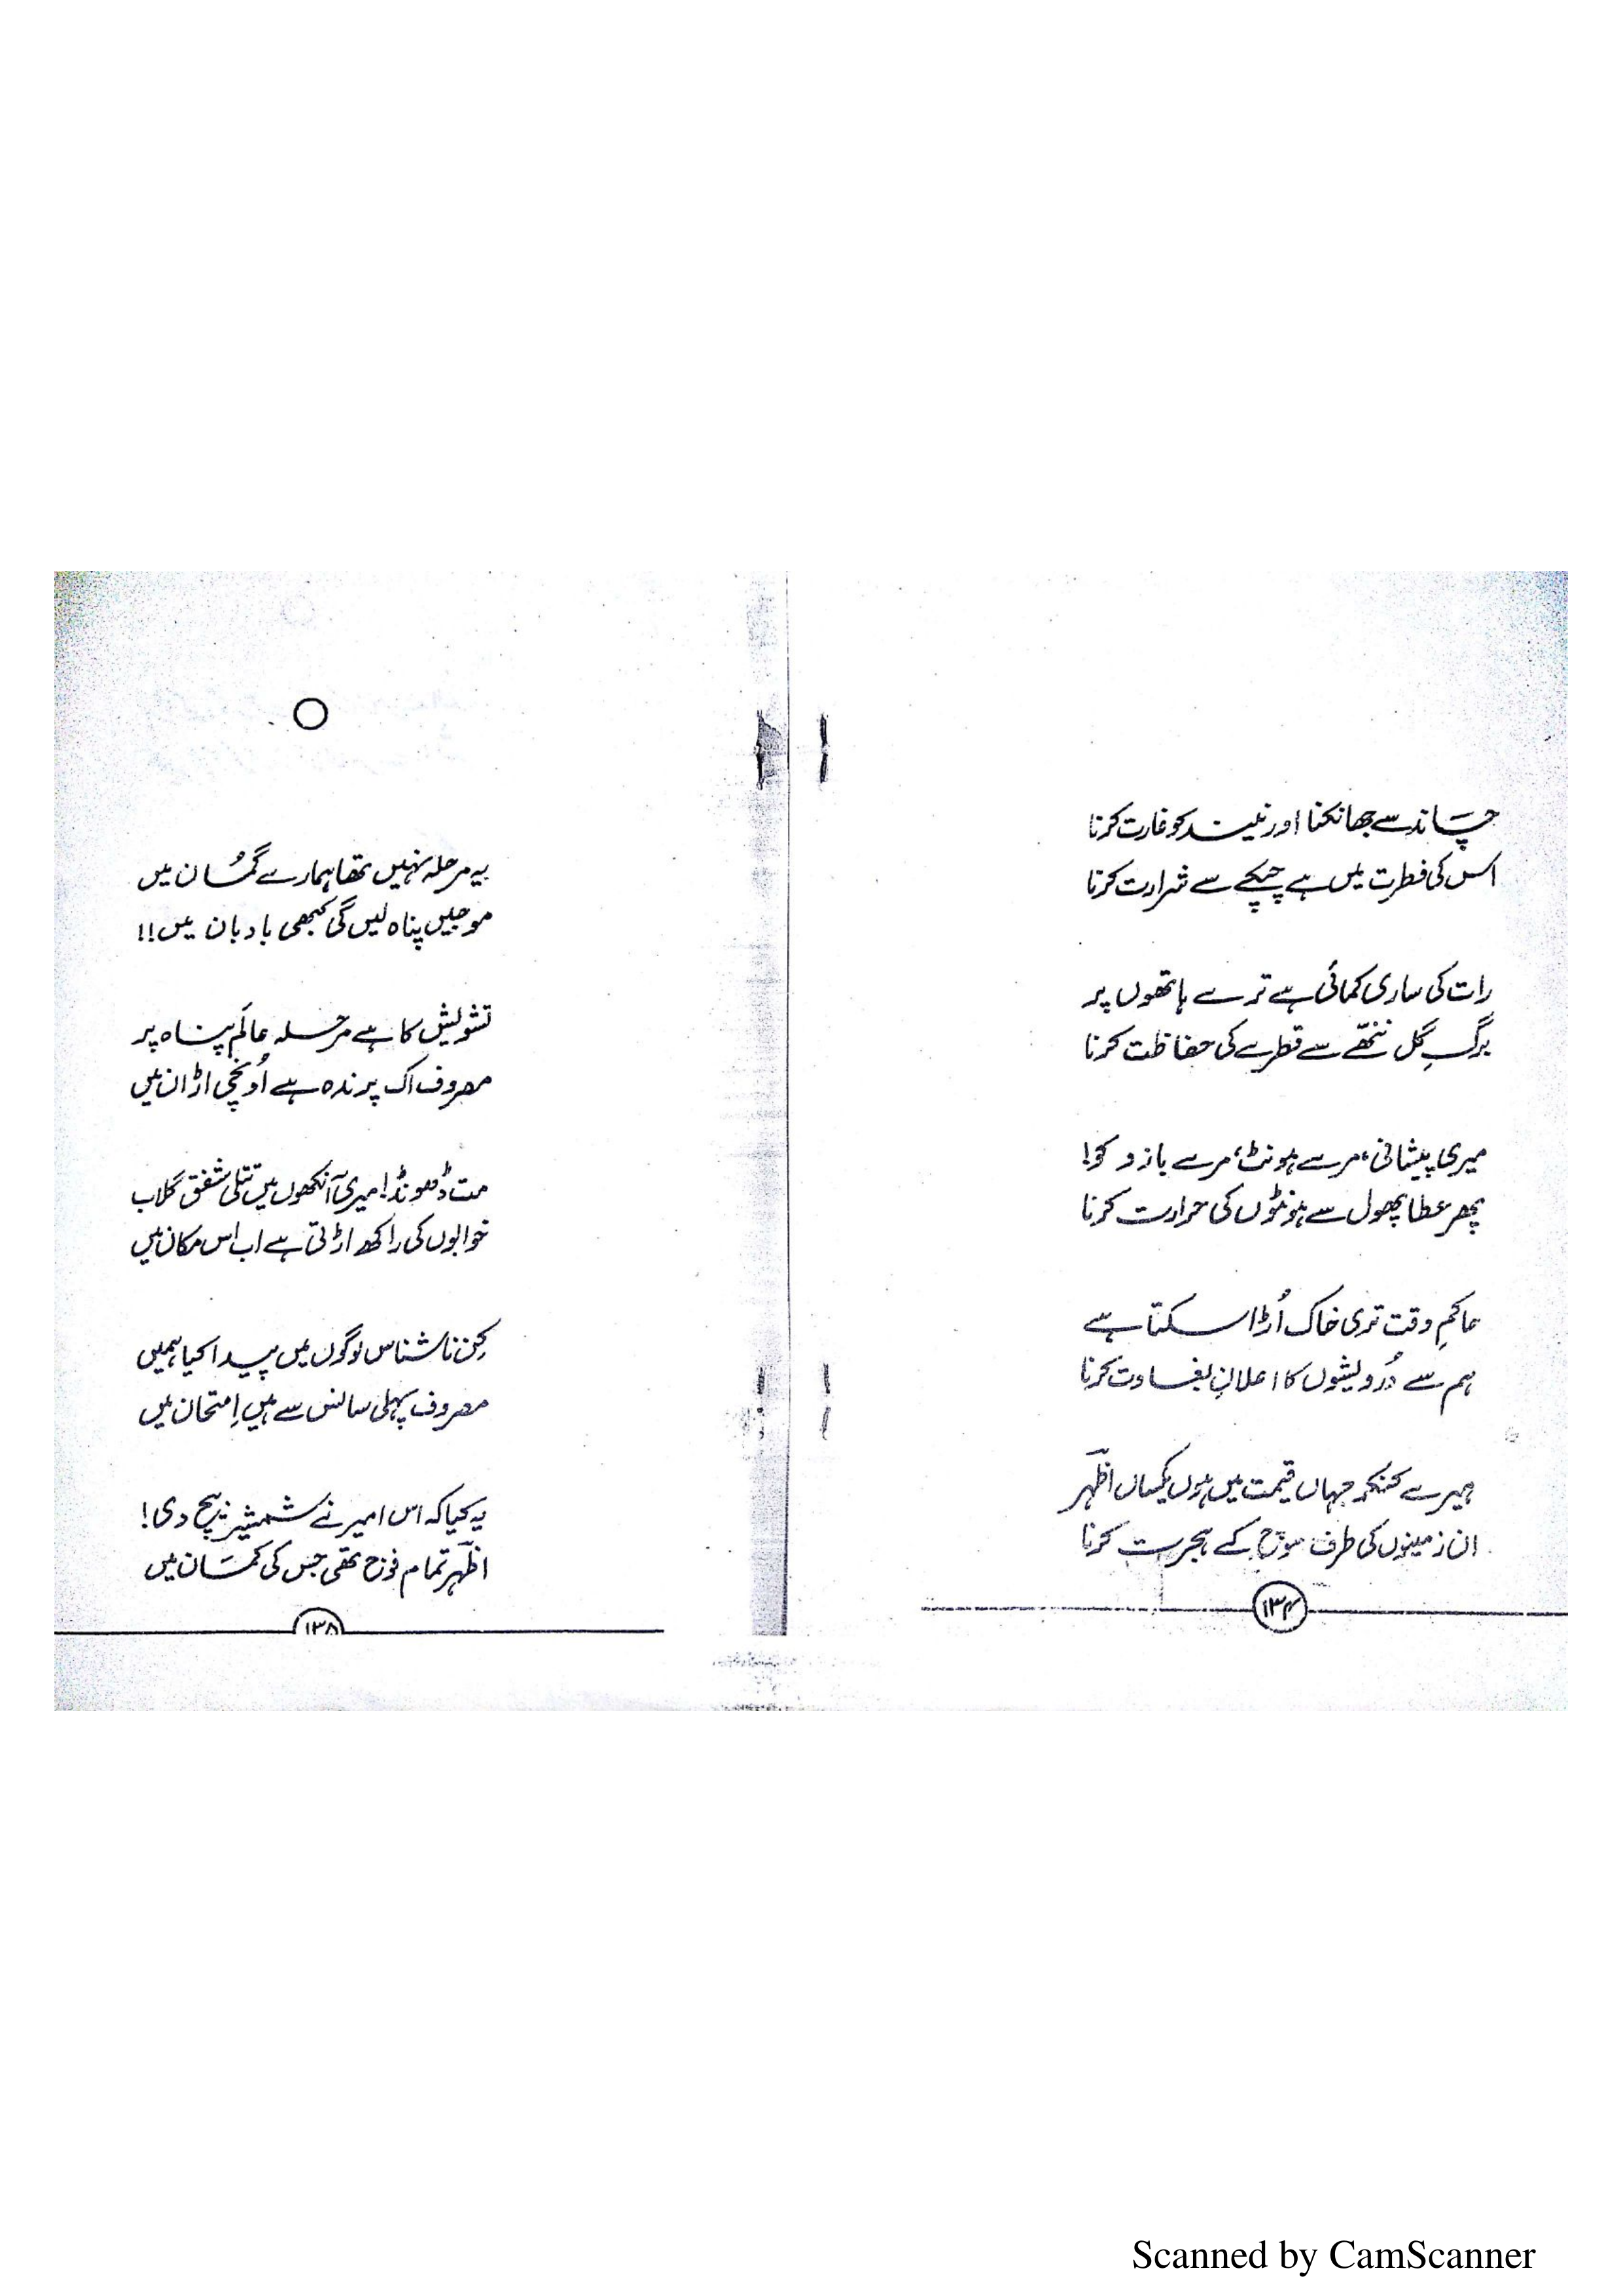 چاند سے جھانکنا اور نیند کو غارت کرنا
اس کی فطرت میں ہے چپکے سے شرارت کرنا
رات کی ساری کمائی ہے ترے ہاتھوں پر
برگِ گل ننھّے سے قطرے کی حفاظت کرنا
میری پیشانی، مرے ہونٹ، مرے بازو کو!
پھر عطا پھول سے ہونٹوں کی حرارت کرنا
حاکمِ وقت تری خاک اُڑا سکتا ہے
ہم سے دُرویشوں کا اعلانِ بغاوت کرنا
ہیرے کنکر جہاں قیمت میں ہوں یکساں اظہر
ان زمینوں کی طرف سوچ کے ہجرت کرنا
یہ مرحلہ نہیں تھا ہمارے گُمان میں
موجیں پناہ لیں گی کبھی بادبان میں!!
تشویش کا ہے مرحلہ عالَم پناہ پر
مصروف اک پرندہ ہے اُونچی اڑان میں
مت ڈھونڈ! میری آنکھوں میں تتلی شفق گلاب
خوابوں کی راکھ اڑتی ہے اب اس مکان میں
کِن ناشناس لوگوں میں پیدا کیا ہمیں
مصروف پہلی سانس سے ہیں اِمتحان میں
یہ کیا کہ اس امیر نے شمشیر بیچ دی!
اظہر تمام فوج تھی جس کی کمَان میں
۱۳۸
Scanned by CamScanner